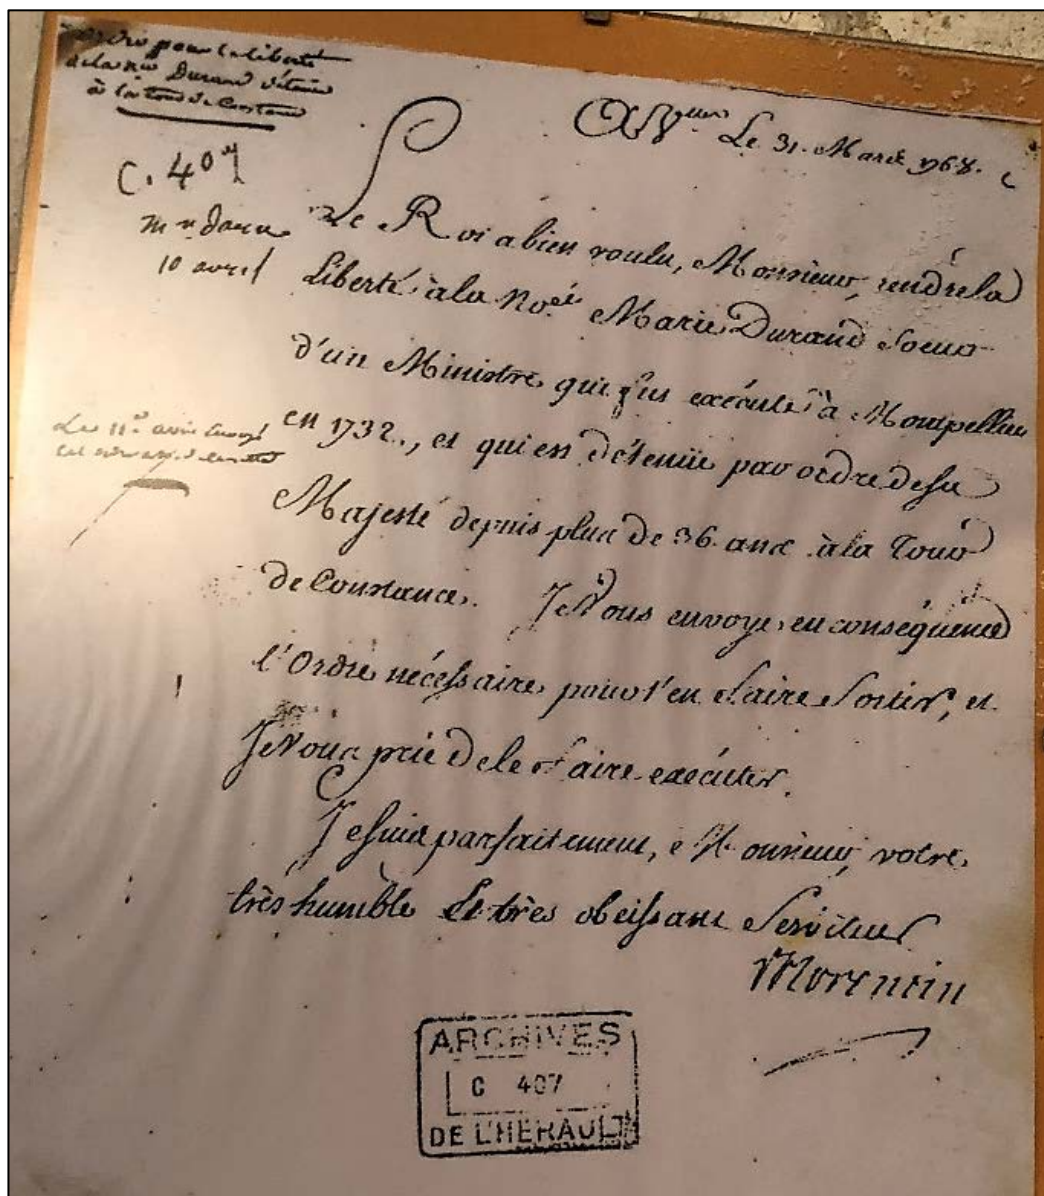 Ordre pour la liberté
de la née Durand détenue
à la tour de Constance
C. 407
10 avril
Le 31. Mars 1768.
Le Roi a bien voulu, Monsieur, rendre la
Liberté à la Née Marie Durand Soeur
d'un Ministre qui fut exécuté à Montpellier
en 1732., et qui est détenüe par ordre de Sa
Majesté depuis plus de 36. ans à la Tour
de Constance. Je Vous envoye, en conséquence
l'Ordre nécessaire pour l'en faire Sortir, et
Je Vous prie de le faire exécuter.
Je suis parfaitement, Monsieur, votre
très humble Et très obeissant Serviteur
ARCHIVES
C 407
DE L'HERAULT